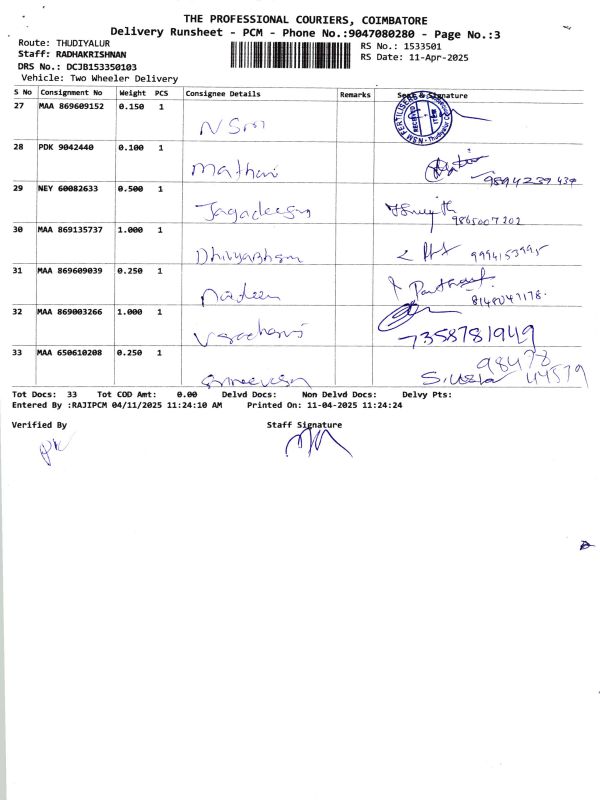 THE PROFESSIONAL COURIERS, COIMBATORE
Delivery Runsheet - PCM - Phone No.:9047080280 - Page No.:3
Route: THUDIYALUR
RS No.: 1533501
Staff: RADHAKRISHNAN
RS Date: 11-Apr-2025
DRS No.: DCJB153350103
Vehicle: Two Wheeler Delivery
S No Consignment No Weight PCS Consignee Details Remarks Seal & Signature
27 MAA 869609152 0.150 1
N Sri
28 PDK 9042440 0.100 1
Mathavi
29 NEY 60082633 0.500 1
Jagadeesan
9865007202
30 MAA 869135737 1.000 1
Dhivyabharn
9994153995
31 MAA 869609039 0.250 1
Nadeen
8148047178.
32 MAA 869003266 1.000 1
7358781949
33 MAA 650610208 0.250 1
98478
44579
Sreevesn
Tot Docs: 33 Tot COD Amt: 0.00 Delvd Docs: Non Delvd Docs: Delvy Pts:
Entered By :RAJIPCM 04/11/2025 11:24:10 AM Printed On: 11-04-2025 11:24:24
Verified By Staff Signature